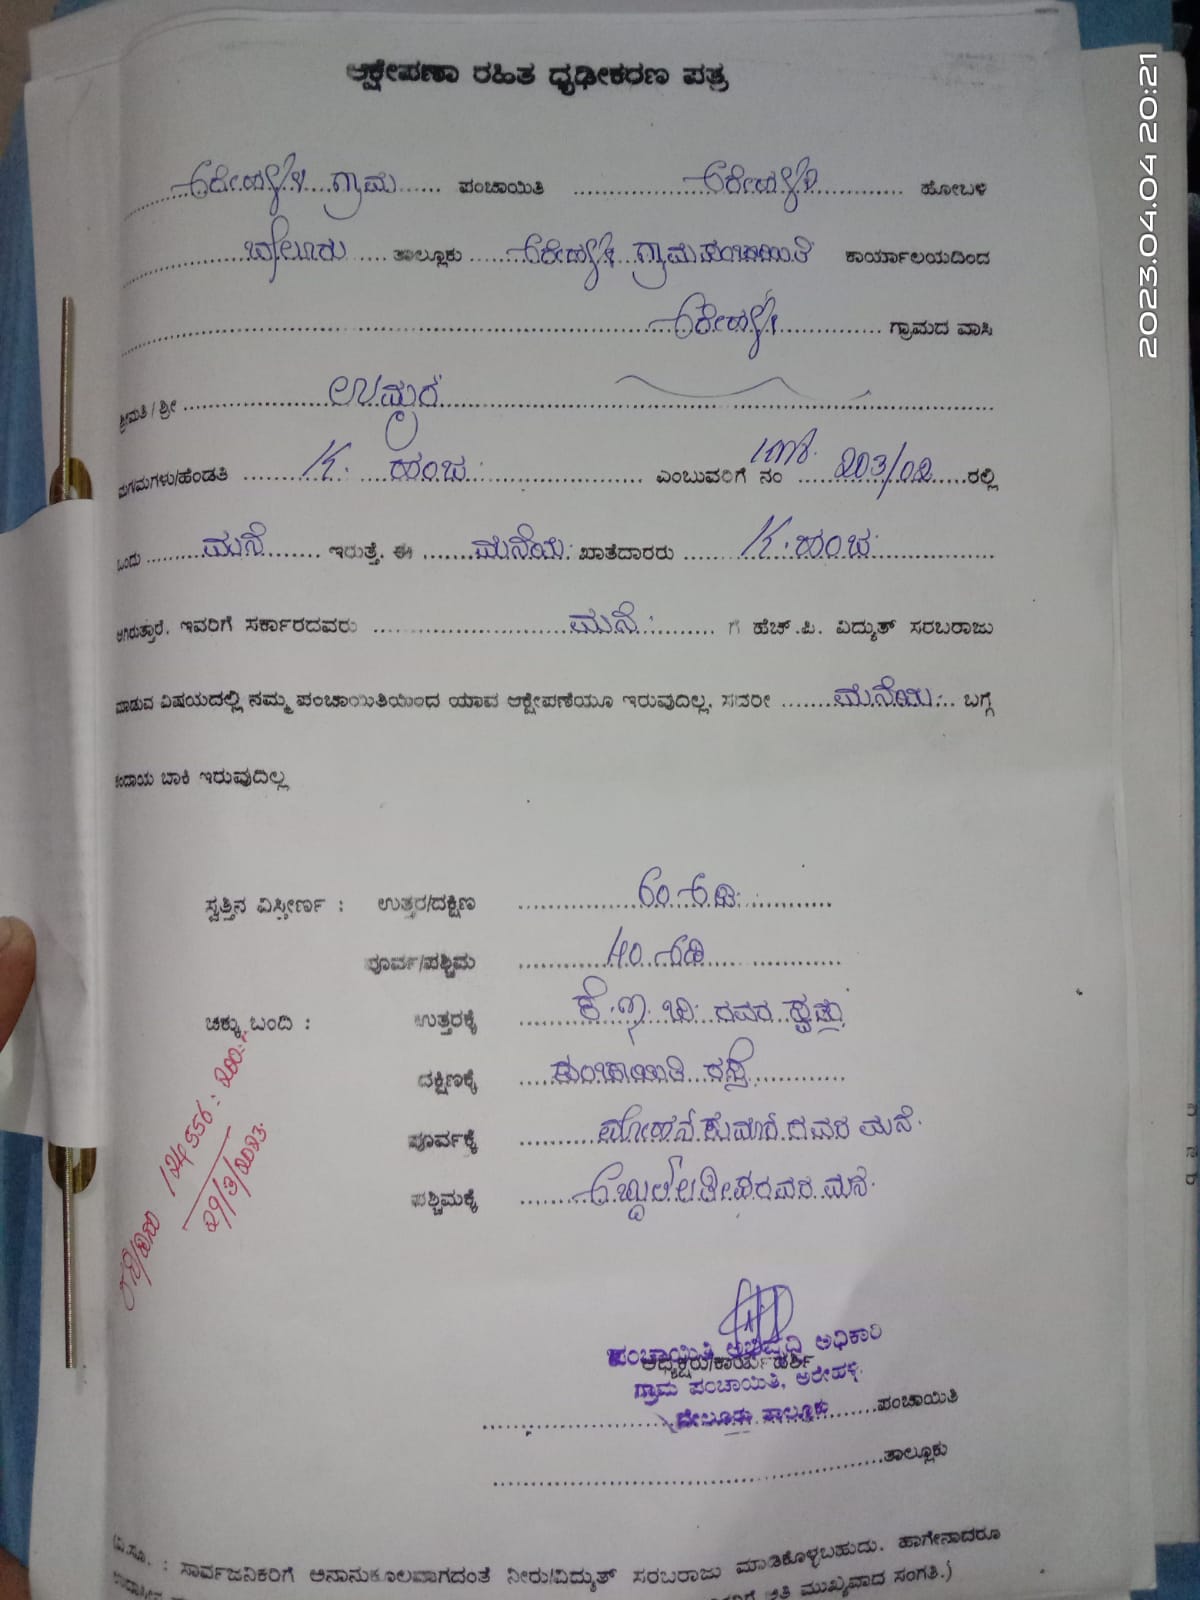 ಆಕ್ಷೇಪಣಾ ರಹಿತ ಧೃಢೀಕರಣ ಪತ್ರ
2023.04.04 20:21
ಅರೇಹಳ್ಳಿ ಗ್ರಾಮ ಪಂಚಾಯಿತಿ ಅರೇಹಳ್ಳಿ ಹೋಬಳಿ
ಬೇಲೂರು ತಾಲ್ಲೂಕು ಅರೇಹಳ್ಳಿ ಗ್ರಾಮ ಪಂಚಾಯಿತಿ ಕಾರ್ಯಾಲಯದಿಂದ
ಅರೇಹಳ್ಳಿ ಗ್ರಾಮದ ವಾಸಿ
ಶ್ರೀಮತಿ / ಶ್ರೀ ಉಮ್ಮರ್
ಮಗ/ಮಗಳು/ಹೆಂಡತಿ K. ಹಂಜ ಎಂಬುವರಿಗೆ ನಂ 203/02 ರಲ್ಲಿ
ಒಂದು ಮನೆ ಇರುತ್ತೆ. ಈ ಮನೆಯ ಖಾತೆದಾರರು K. ಹಂಜ
ಆಗಿರುತ್ತಾರೆ. ಇವರಿಗೆ ಸರ್ಕಾರದವರು ಮನೆ ಗೆ ಹೆಚ್.ಪಿ. ವಿದ್ಯುತ್ ಸರಬರಾಜು
ಮಾಡುವ ವಿಷಯದಲ್ಲಿ ನಮ್ಮ ಪಂಚಾಯಿತಿಯಿಂದ ಯಾವ ಆಕ್ಷೇಪಣೆಯೂ ಇರುವುದಿಲ್ಲ. ಸದರೀ ಮನೆಯ ಬಗ್ಗೆ
ಕಂದಾಯ ಬಾಕಿ ಇರುವುದಿಲ್ಲ
ಸ್ವತ್ತಿನ ವಿಸ್ತೀರ್ಣ : ಉತ್ತರ/ದಕ್ಷಿಣ 60 ಅಡಿ
ಪೂರ್ವ/ಪಶ್ಚಿಮ 40 ಅಡಿ
ಚಕ್ಕುಬಂದಿ : ಉತ್ತರಕ್ಕೆ ಕೆ.ಇ.ಬಿ. ರವರ ಸ್ವತ್ತು
ದಕ್ಷಿಣಕ್ಕೆ ಪಂಚಾಯಿತಿ ರಸ್ತೆ
ಪೂರ್ವಕ್ಕೆ ಮೋಹನ್ ಕುಮಾರ್ ರವರ ಮನೆ
ಪಶ್ಚಿಮಕ್ಕೆ ಅಬ್ದುಲ್ ಲತೀಫ್ ರವರ ಮನೆ
124556: 200
29/3/2023
ಪಂಚಾಯಿತಿ ಅಭಿವೃದ್ಧಿ ಅಧಿಕಾರಿ
ಅಧ್ಯಕ್ಷರು/ಕಾರ್ಯದರ್ಶಿ
ಗ್ರಾಮ ಪಂಚಾಯಿತಿ, ಅರೇಹಳ್ಳಿ
ಬೇಲೂರು ತಾಲ್ಲೂಕು ಪಂಚಾಯಿತಿ
ತಾಲ್ಲೂಕು
(ವಿ.ಸೂ. : ಸಾರ್ವಜನಿಕರಿಗೆ ಅನಾನುಕೂಲವಾಗದಂತೆ ನೀರು/ವಿದ್ಯುತ್ ಸರಬರಾಜು ಮಾಡಿಕೊಳ್ಳಬಹುದು. ಹಾಗೇನಾದರೂ
ಅತಿ ಮುಖ್ಯವಾದ ಸಂಗತಿ.)